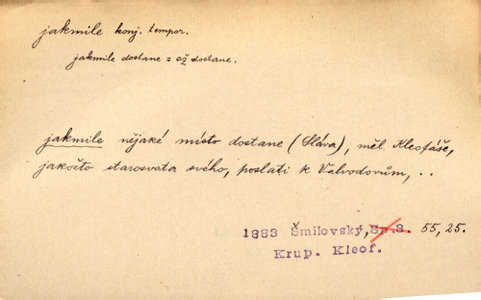 jakmile konj. tempor.
jakmile dostane = až dostane.
jakmile nějaké místo dostane (Sláva), měl Kleofáše,
jakožto starosvata svého, poslati k Valvodovům, ..
1883 Šmilovský, Sp.3. 55, 25.
Krup. Kleof.